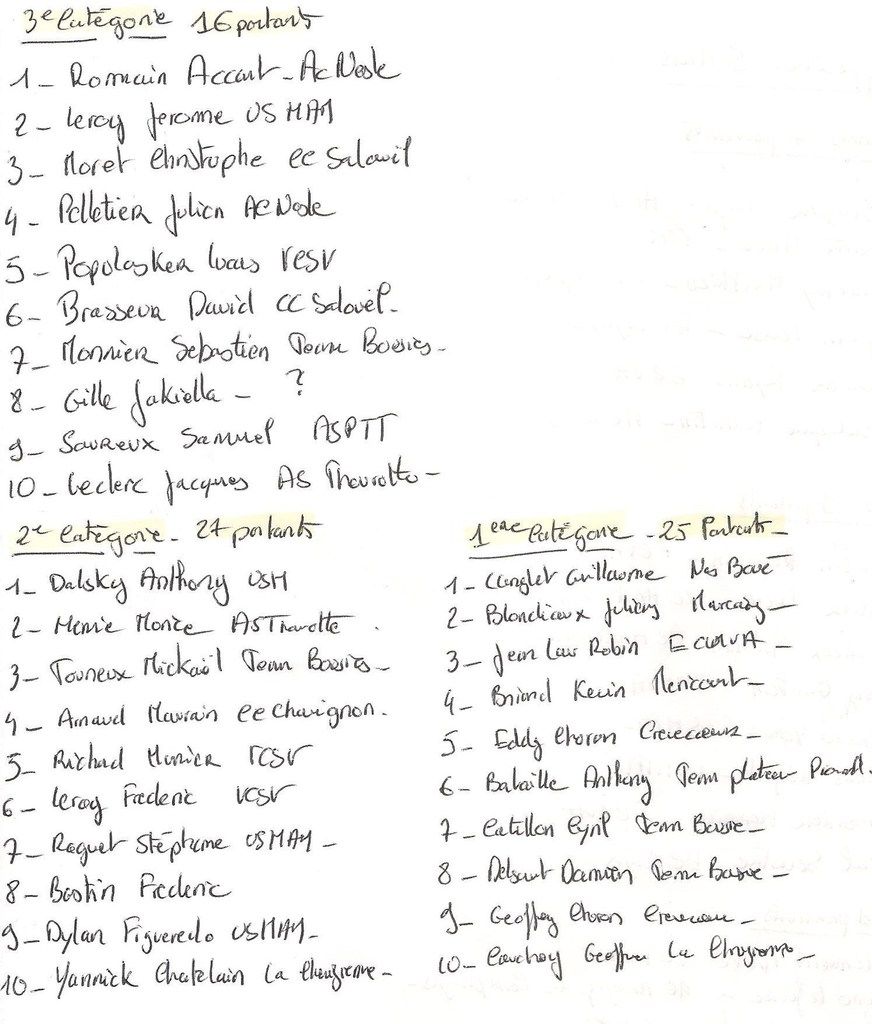 3e Catégorie 16 partants
1_ Romain Accart _ Ac Nesle
2_ Leroy Jerome US MAM
3_ Moret Christophe CC Salouël
4_ Pelletier Julien AC Nesle
5_ Popolasker Lucas VCSV
6_ Brasseur David CC Salouël_
7_ Monnier Sebastien Team Bousies_
8_ Gille Jakiella _ ?
9_ Saureux Samuel ASPTT
10_ Leclerc Jacques AS Thourotte_
2e Catégorie _ 27 partants
1_ Dalsky Anthony USM
2_ Menie Monce AS Thourotte .
3_ Tourneux Mickaël Team Bousies_
4_ Arnaud Maurain CC Chavignon.
5_ Richard Munier VCSV
6_ Leroy Frederic VCSV
7_ Raguet Stéphane USMAM_
8_ Bastin Frederic
9_ Dylan Figueredo USMAM_
10_ Yannick Chatelain La
1ere Catégorie _ 25 Partants_
1_ Guillaume
2_ Blondiaux
3_ Jean Luc Robin
4_ Briand Kevin Mericourt_
5_ Eddy Choron Crevecoeur_
6_ Bataille Anthony Team plateau
7_ Catillon Cyril Team
8_ Delsaut Damien Team
9_ Geoffrey Choron Crevecoeur_
10_ Geoffrey La